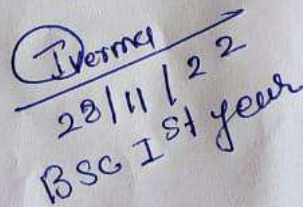 Iverma
28/11/22
BSC Ist year